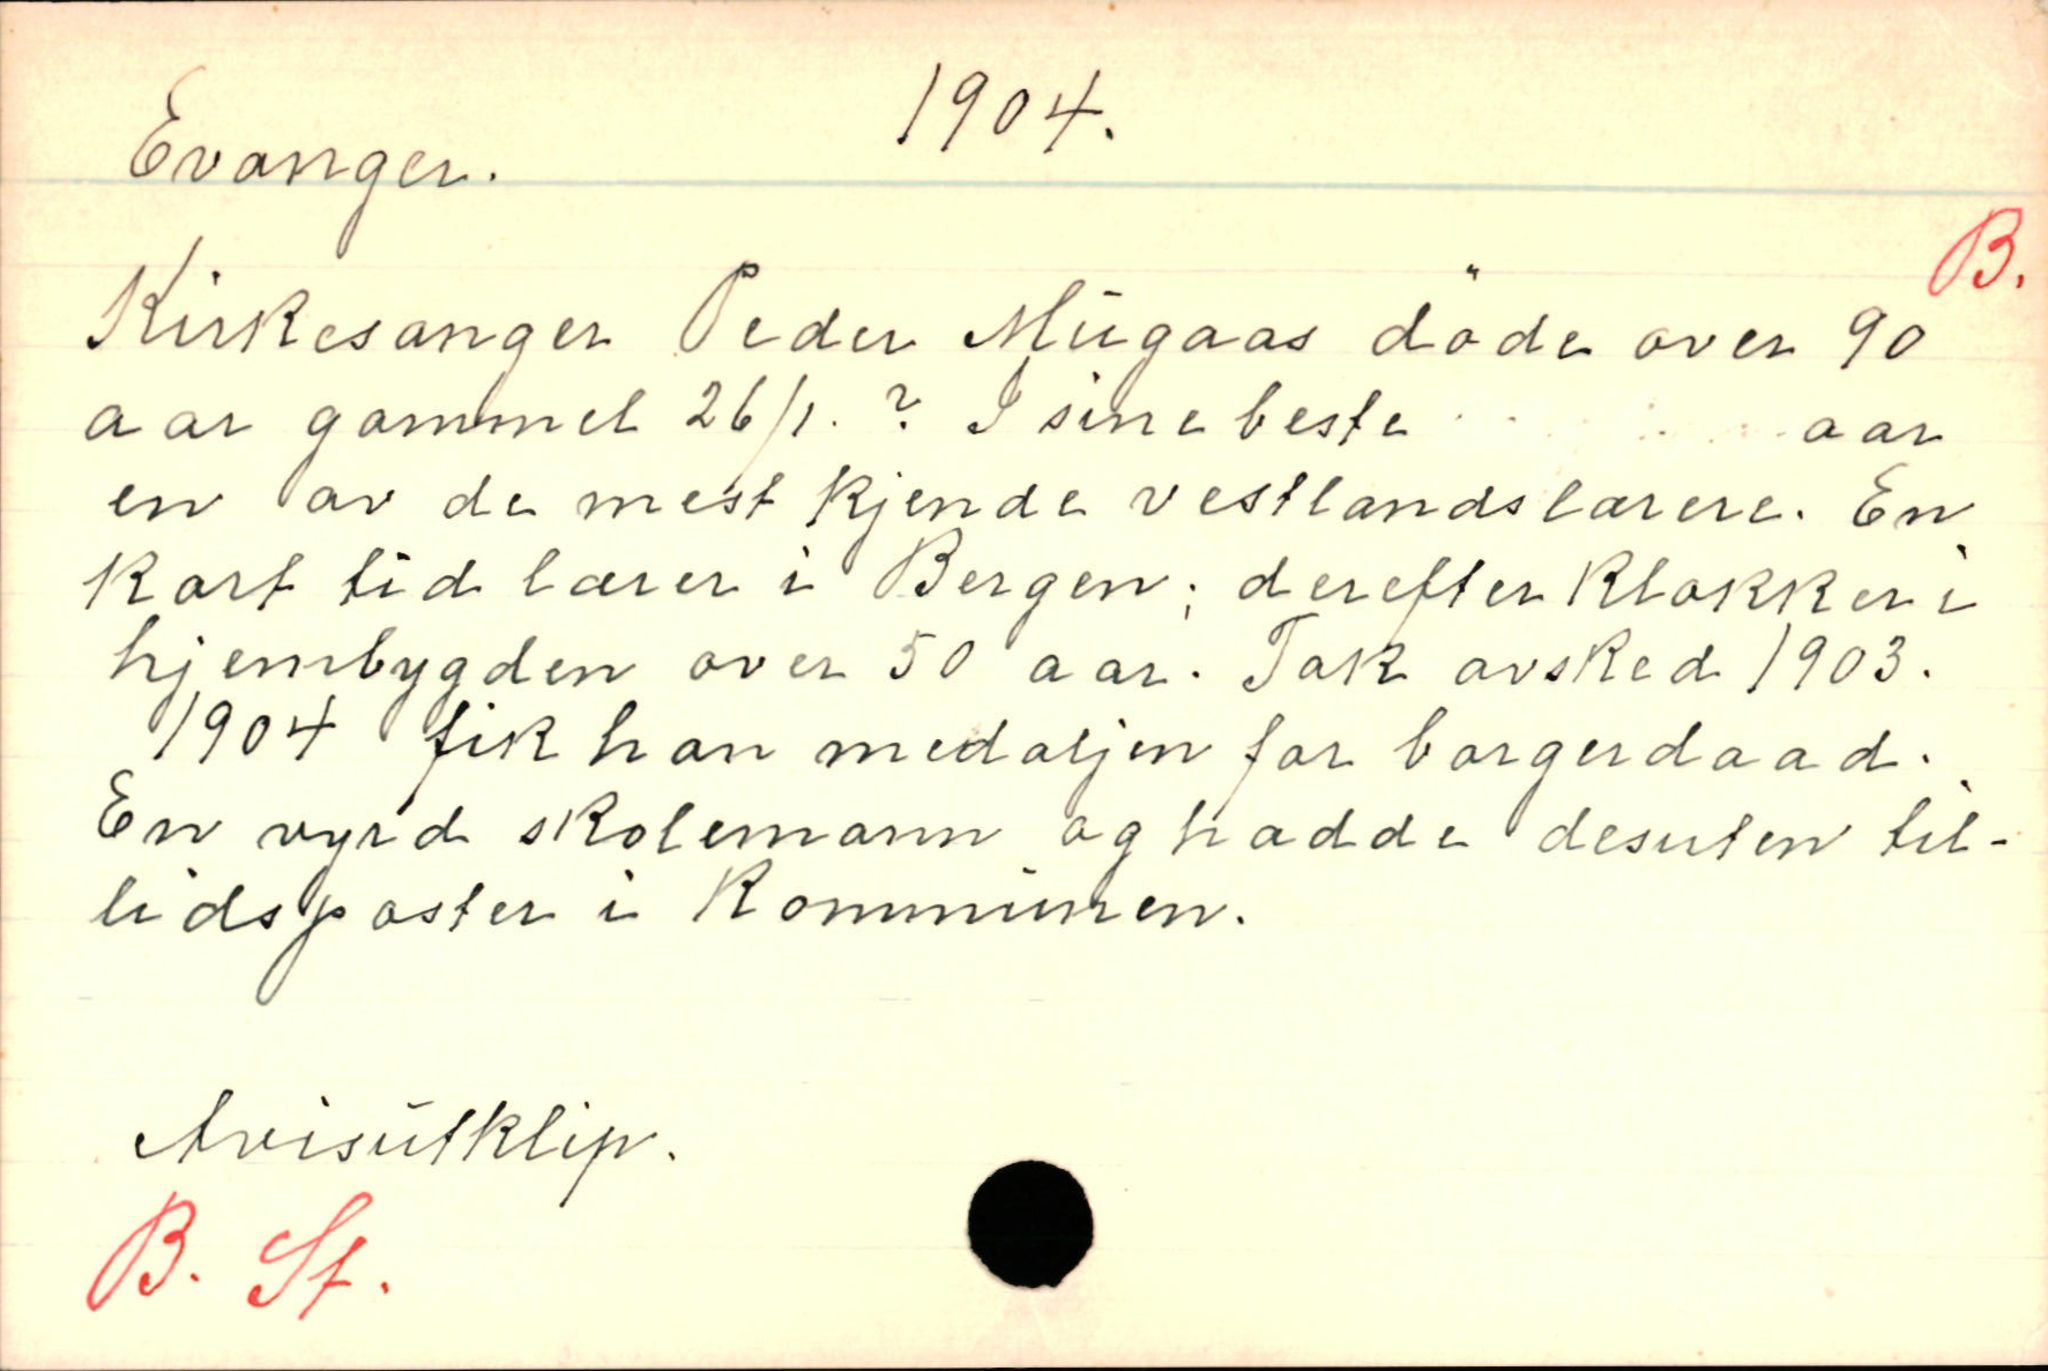 1904.
Evanger.
B.
Kirkesanger Peder Mügaas döde over 90
aar gammel 26/1. ? I sine beste aar
en av de mest kjende vestlandslærere. En
kort tid lærer i Bergen; derefter klokker i
hjembygden over 50 aar. Tok avsked 1903.
1904 fik han medaljen for borgerdaad.
En vyrd skolemann og hadde desuten til-
lidsposter i kommunen.
Avisutklip.
B. St.